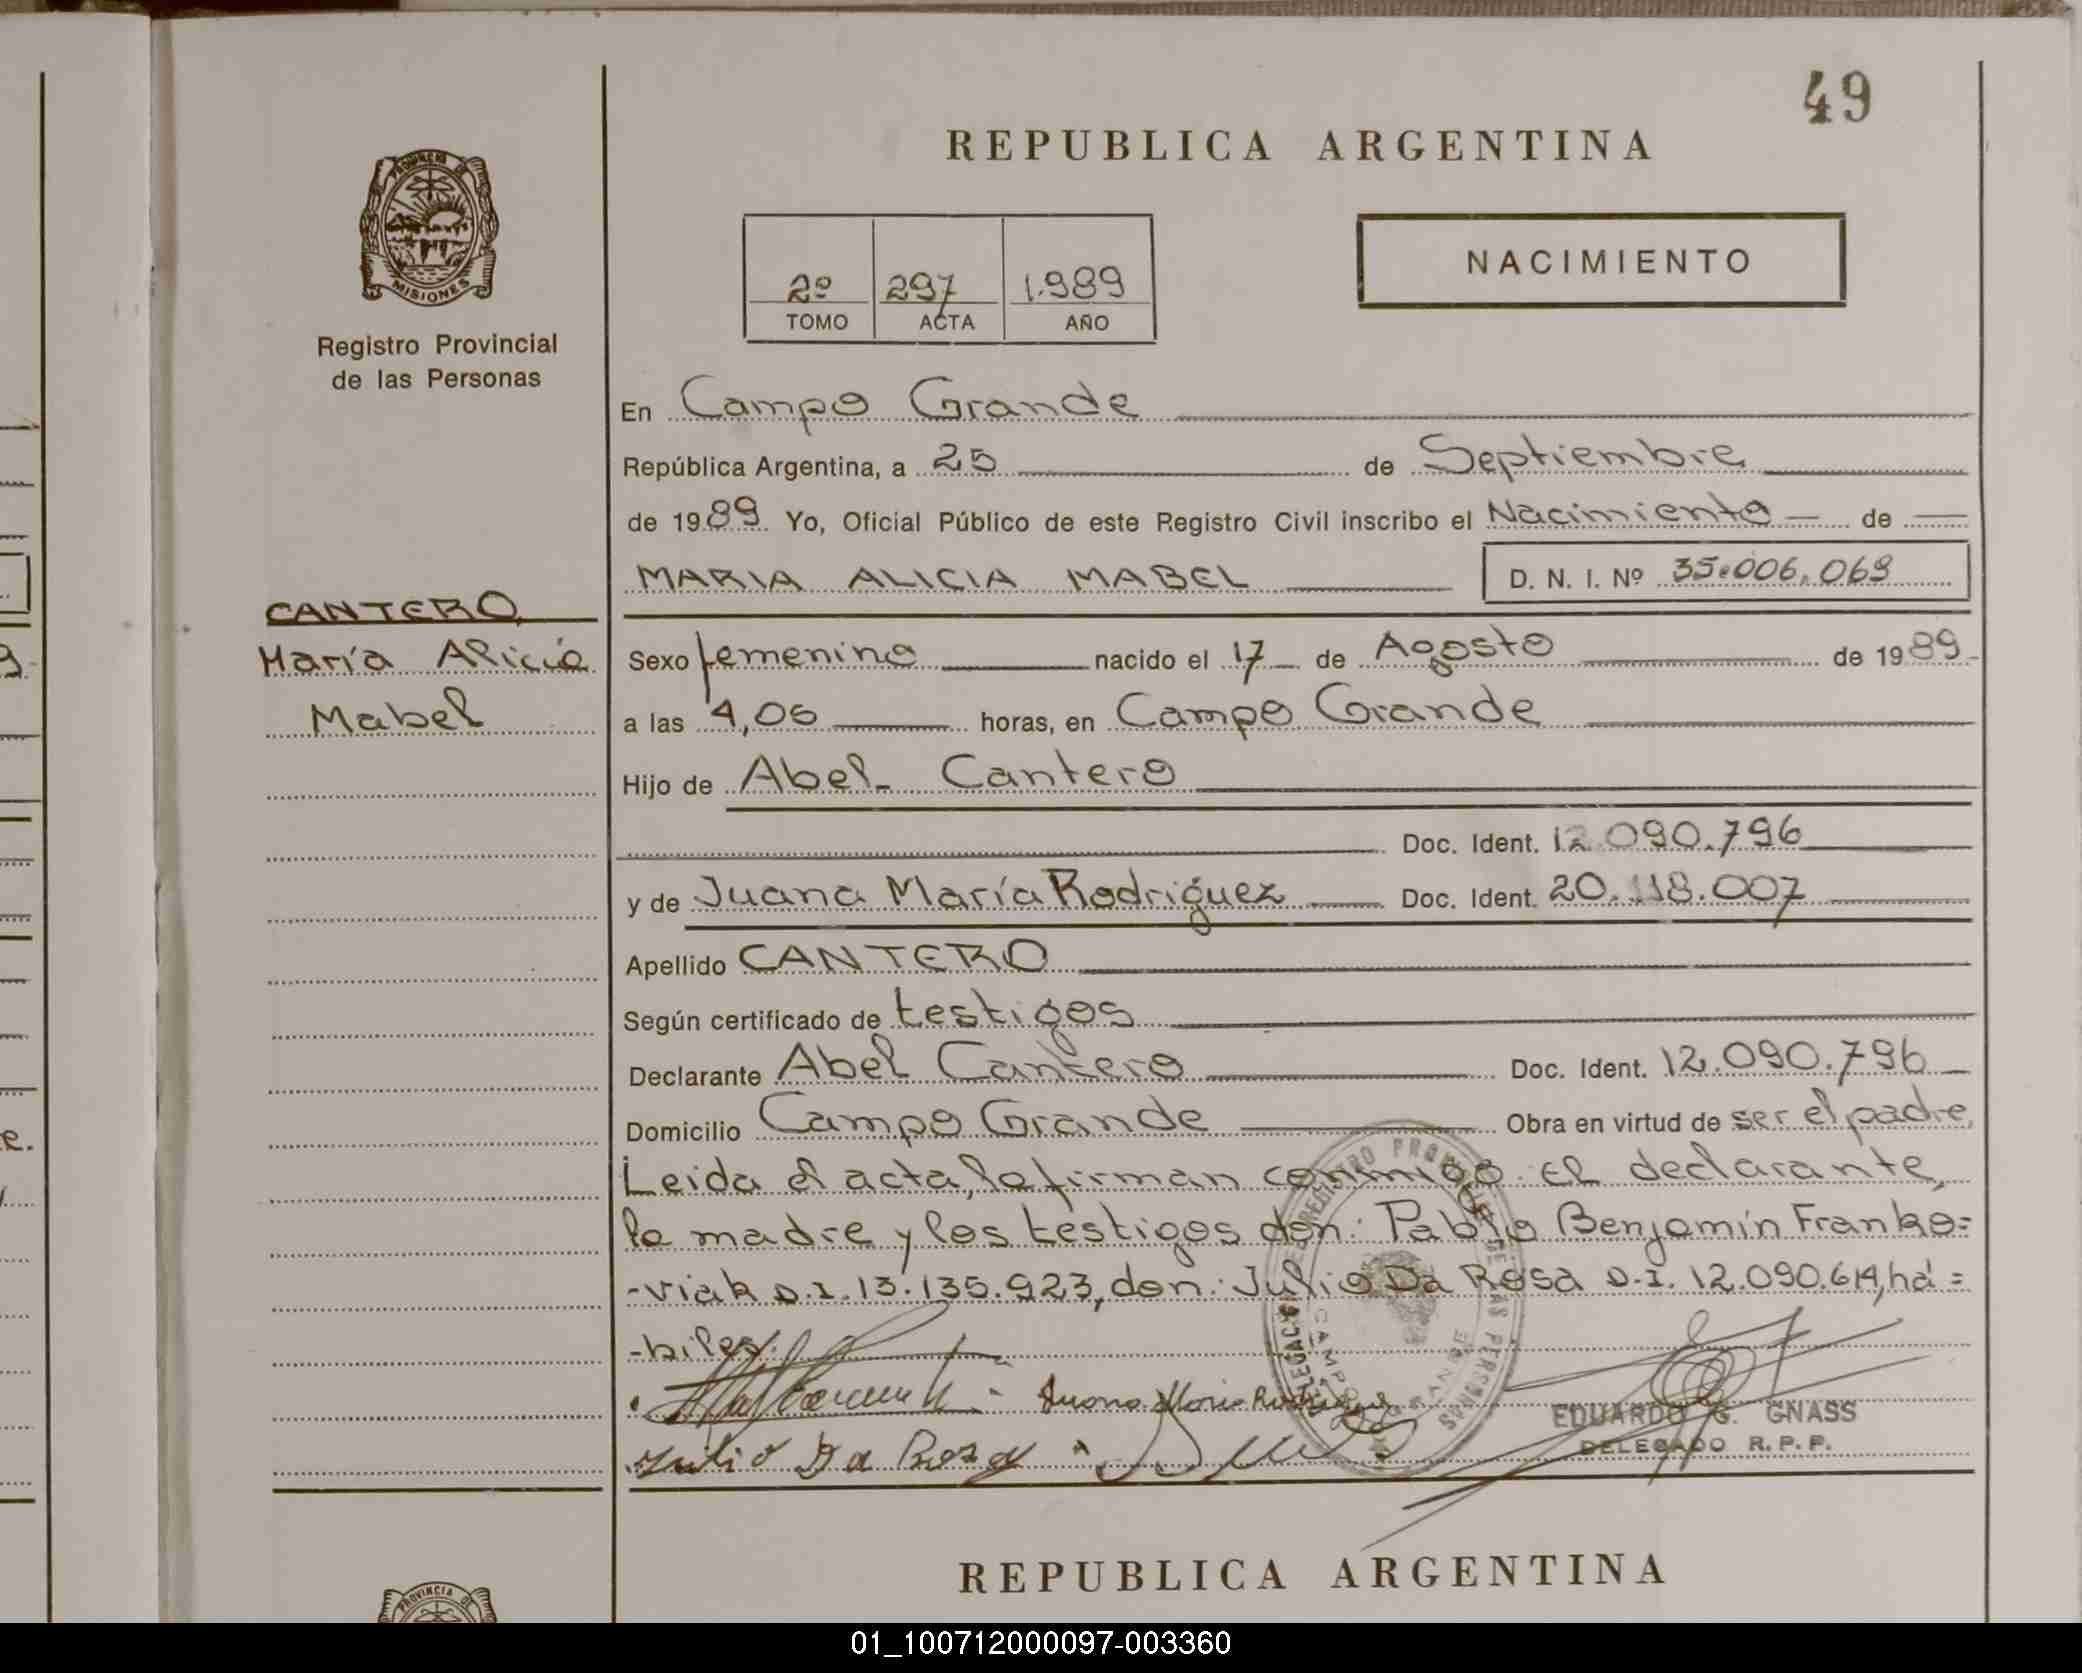 49
REPUBLICA ARGENTINA
PROVINCIA DE
MISIONES
Registro Provincial
de las Personas
2º 297 1.989
TOMO ACTA AÑO
NACIMIENTO
En Campo Grande
República Argentina, a 25 de Septiembre
de 1989 Yo, Oficial Público de este Registro Civil inscribo el Nacimiento de
MARIA ALICIA MABEL D. N. I. Nº 35.006.069
CANTERO,
María Alicia
Mabel
Sexo femenino nacido el 17 de Agosto de 1989
a las 4,05 horas, en Campo Grande
Hijo de Abel Cantero
Doc. Ident. 12.090.796
y de Juana María Rodríguez Doc. Ident. 20.118.007
Apellido CANTERO
Según certificado de testigos
Declarante Abel Cantero Doc. Ident. 12.090.796
Domicilio Campo Grande Obra en virtud de ser el padre,
Leida el acta, la firman conmigo el declarante,
la madre y los testigos don: Pablo Benjamín Franko=
-viak D.I. 13.135.923, don: Julio Da Rosa D.I. 12.090.614, há=
-biles.
Juana Maria Rodriguez
Julio Da Rosa
EDUARDO G. GNASS
DELEGADO R.P.P.
REPUBLICA ARGENTINA
PROVINCIA DE
01_100712000097-003360